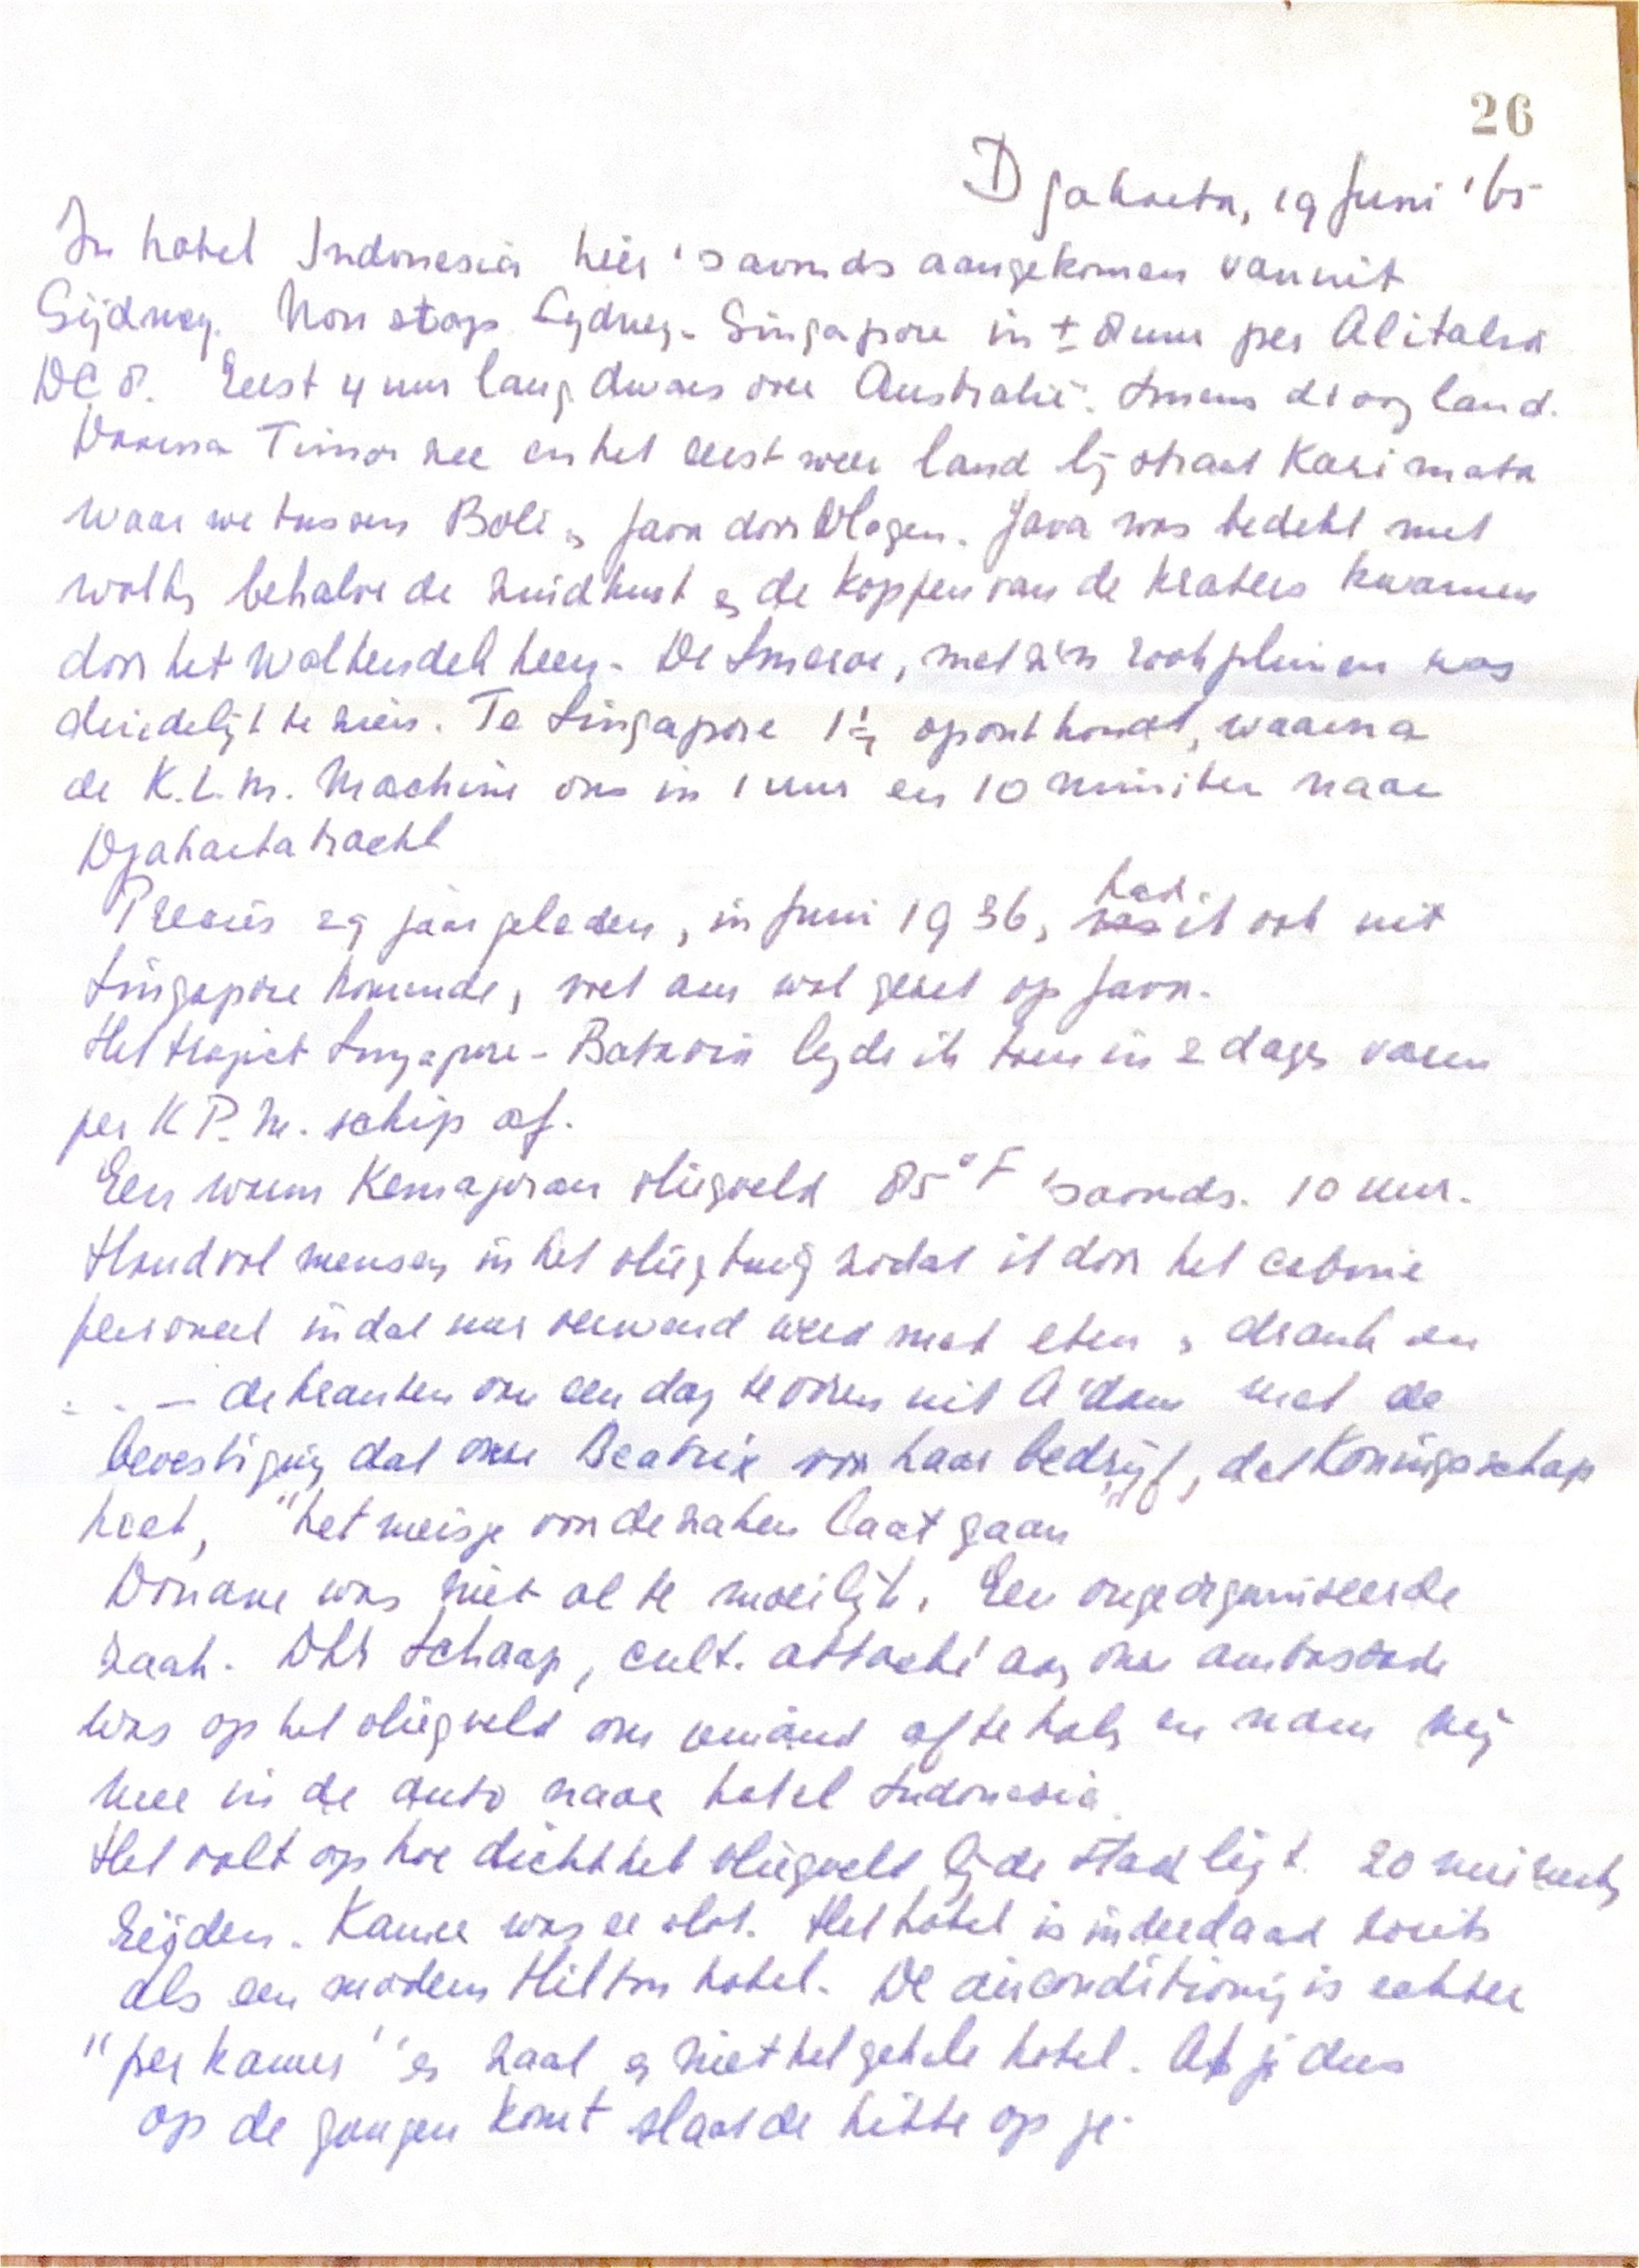 26
Djakarta, 19 Juni '65
In hotel Indonesia hier 's avonds aangekomen vanuit
Sijdney. Non stop Sydney-Singapore in ± 8 uur per Alitalia
DC 8. Eerst 4 uur lang dwars over Australië. droog land.
Daarna Timor zee en het eerst weer land bij straat Karimata
waar we tussen Bali en Java door vlogen. Java was bedekt met
wolken behalve de zuidkust en de koppen van de kraters kwamen
door het wolkendek heen. De Smeroe, met z'n rookpluimen was
duidelijk te zien. Te Singapore 1½ oponthoud, waarna
de K.L.M. machine ons in 1 uur en 10 minuten naar
Djakarta bracht
Precies 29 jaar geleden, in Juni 1936, had ik ook uit
Singapore komende, voet aan wal gezet op Java.
Het traject Singapore-Batavia legde ik toen in 2 dagen varen
per K.P.M. schip af.
Een warm Kemajoran vliegveld 85°F 's avonds. 10 uur.
Handvol mensen in het vliegtuig zodat ik door het cabine
personeel in dat uur verwend werd met eten en drank en
. . — de kranten van een dag tevoren uit A'dam met de
bevestiging dat onze Beatrix voor haar bedrijf, dat Koningschap
heet, "het meisje voor de zaken laat gaan"
Douane was niet al te moeilijk. Een ongeorganiseerde
zaak. Dhr Schaap, cult. attaché aan onze ambassade
was op het vliegveld om iemand af te halen en nam mij
mee in de auto naar hotel Indonesia.
Het valt op hoe dicht het vliegveld bij de stad ligt. 20 minuten
rijden. Kamer was er vlot. Het hotel is inderdaad zoiets
als een modern Hilton hotel. De airconditioning is echter
"per kamer" en zaal en niet het gehele hotel. Als je dus
op de gangen komt slaat de hitte op je.